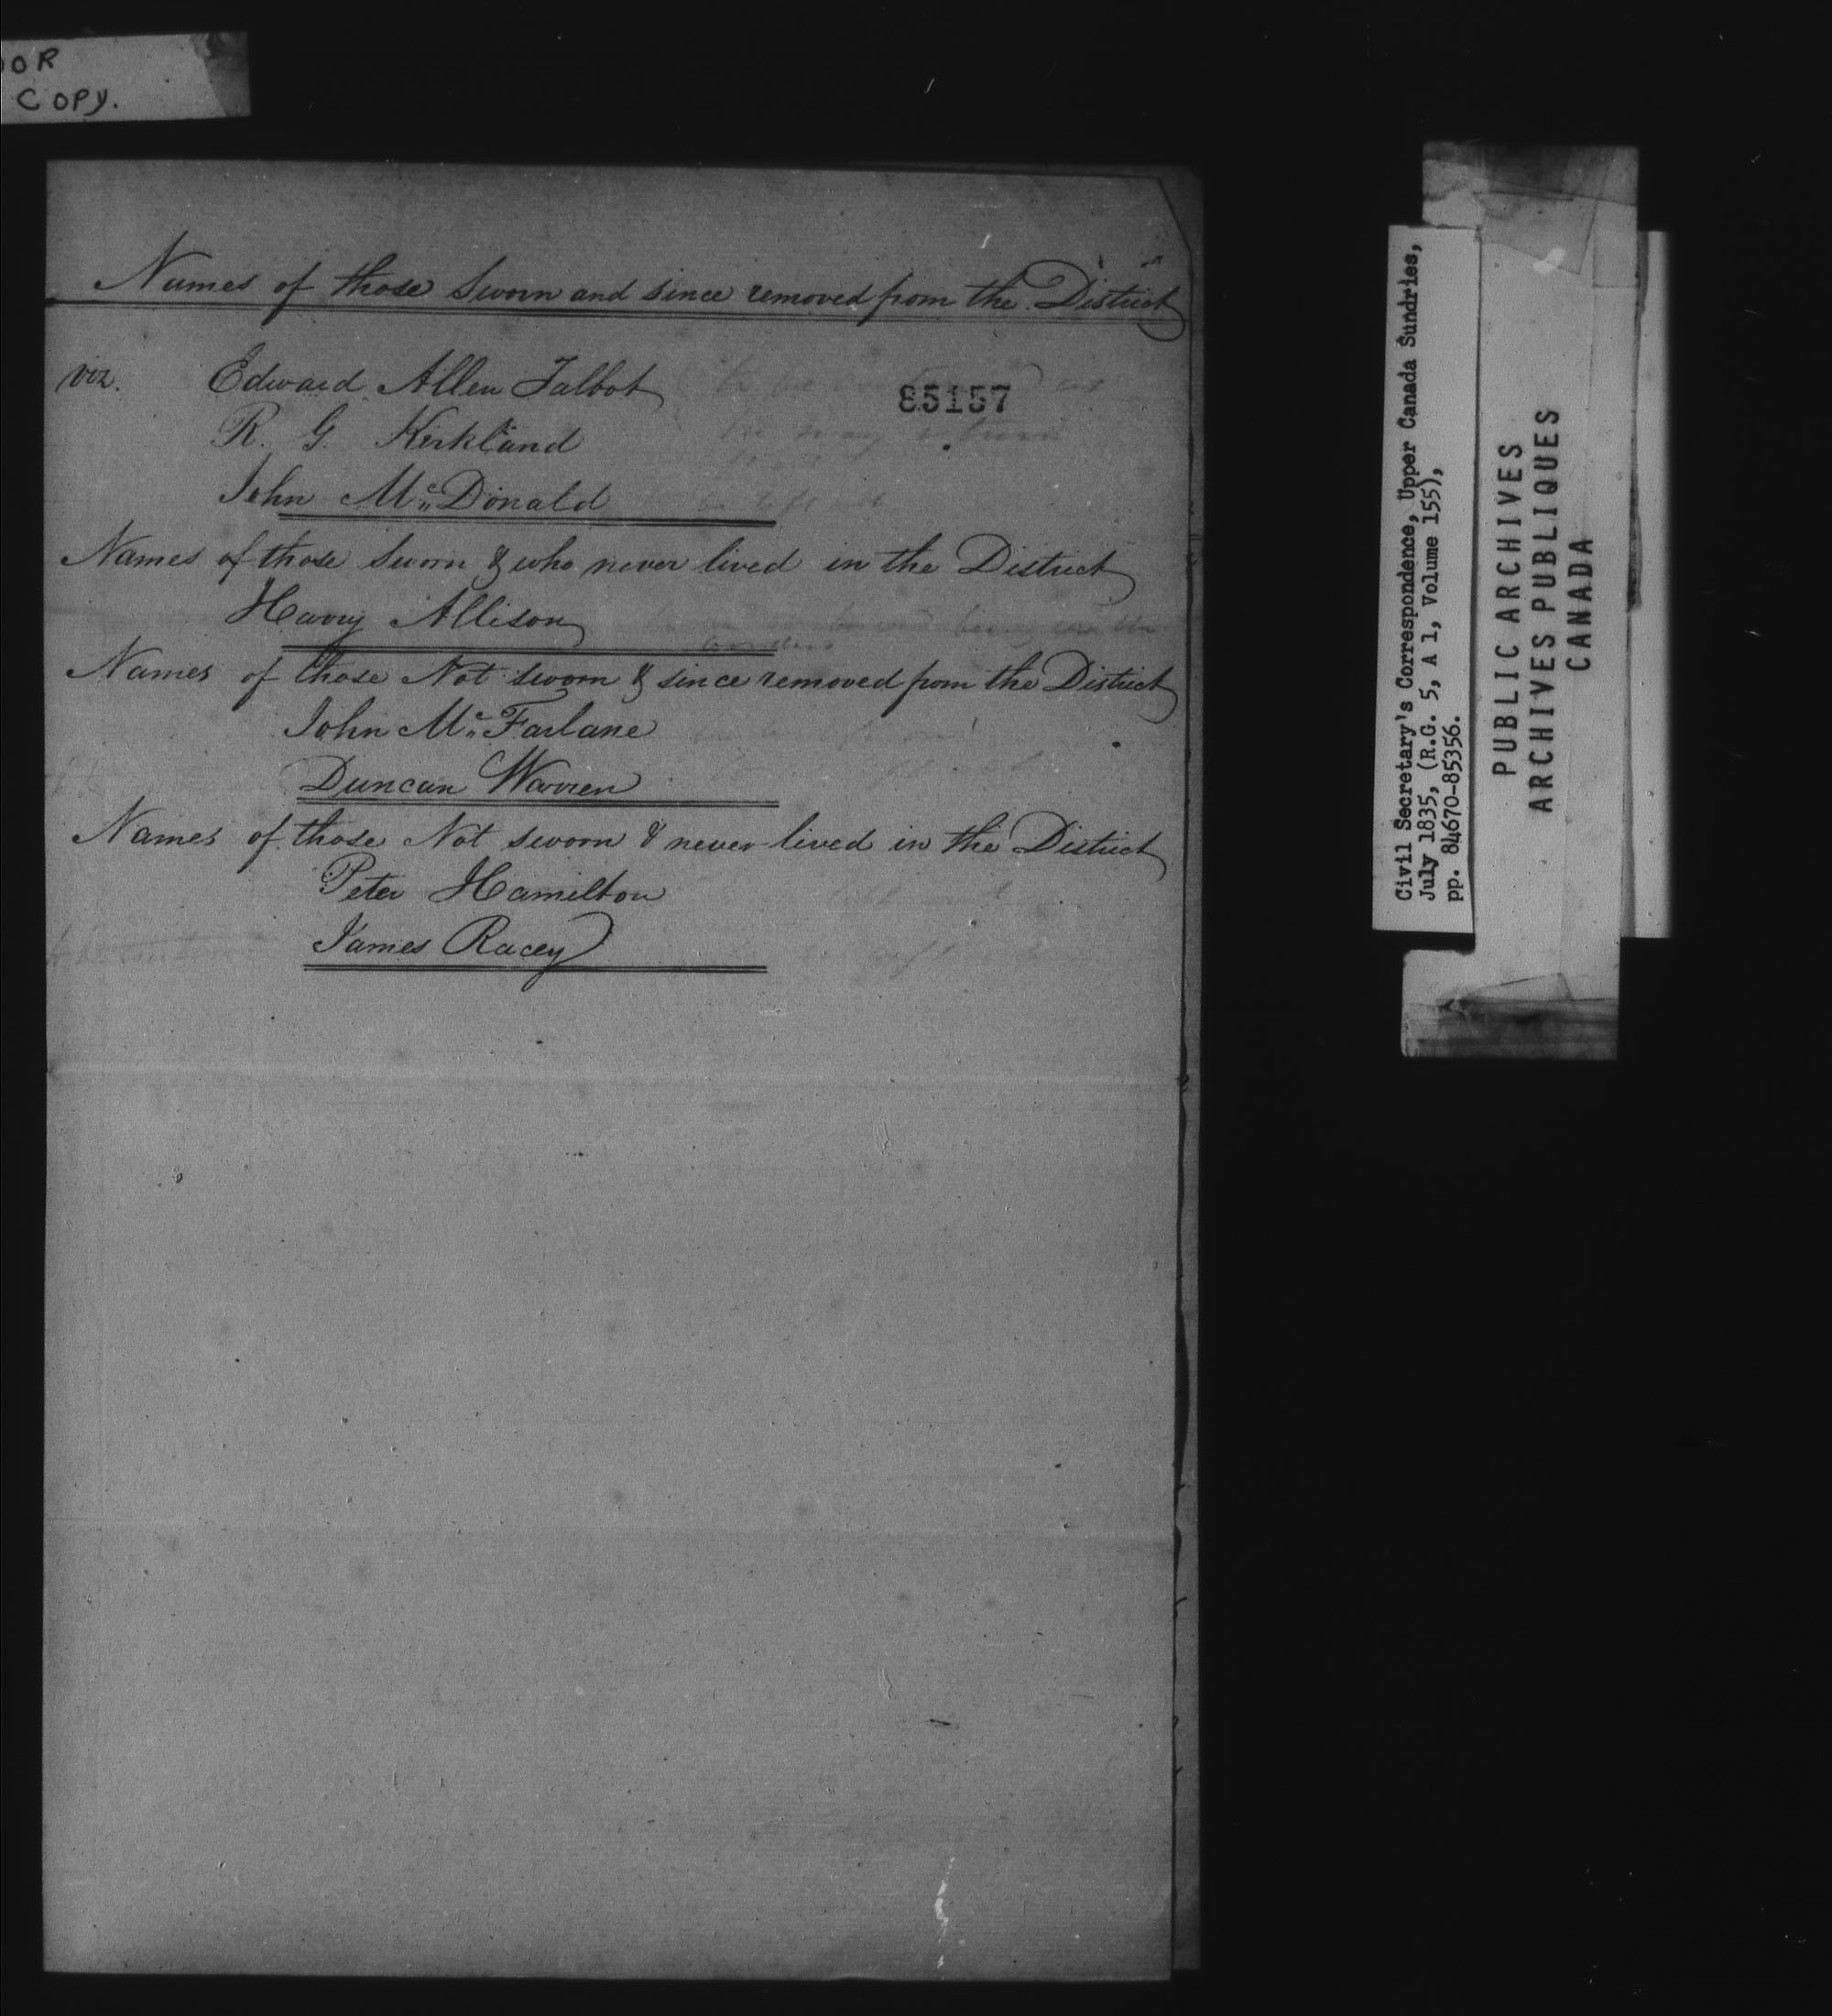 OR
COPY.
Names of those Sworn and since removed from the District
viz. Edward Allen Talbot
85157
R. G. Kirkland
John Mc Donald
Names of those Sworn & who never lived in the District
Harry Allison
Names of those Not sworn & since removed from the District
John Mc Farlane
Duncan Warren
Names of those Not sworn & never lived in the District
Peter Hamilton
James Racey
Civil Secretary's Correspondence, Upper Canada Sundries,
July 1835, (R.G. 5, A 1, Volume 155),
pp. 84670-85356.
PUBLIC ARCHIVES
ARCHIVES PUBLIQUES
CANADA